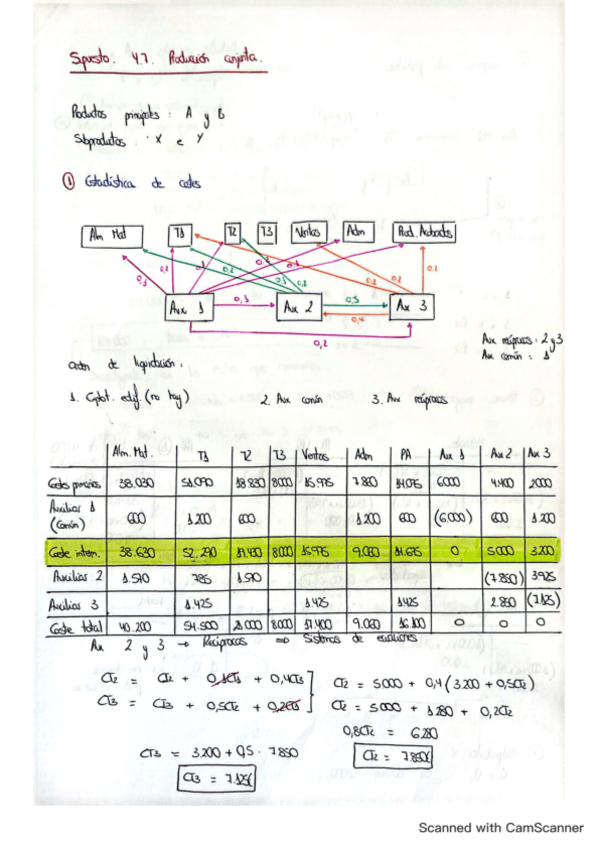 Supuesto. 4.7. Producción conjunta.
Productos principales : A y B
Subproductos . X e Y
① Estadística de costes
Alm Mat T1 T2 T3 Ventas Adm Prod. Acabados
0,1 0,2 0,1 0,2 0,1 0,2 0,2 0,2 0,2
Aux 1 0,3 Aux 2 0,5 Aux 3
0,4
0,2
Aux recíprocos : 2 y 3
Aux común : 1
orden de liquidación :
1. Cptot. edif. (no hay) 2. Aux común 3. Aux recíprocos
Alm. Mat. T1 T2 T3 Ventas Adm PA Aux 1 Aux 2 Aux 3
Costes primarios 38.030 51.090 18.830 8000 15.975 7.880 14.075 6000 4.400 2000
Auxiliar 1 (común) 600 1.200 600 1.200 600 (6.000) 600 1.200
Coste interm. 38.630 52.290 19.430 8000 15.975 9.080 14.675 0 5000 3.200
Auxiliar 2 1.570 785 1.570 (7.850) 3925
Auxiliar 3 1.425 1.425 1.425 2.850 (7.125)
Coste total 40.200 54.500 21.000 8000 17.400 9.080 16.100 0 0 0
Aux 2 y 3 → Recíprocos ⇒ Sistema de ecuaciones
CT2 = CI2 + 0,1CT1 + 0,4CT3
CT3 = CI3 + 0,5CT2 + 0,2CT3
CT2 = 5000 + 0,4 (3.200 + 0,5CT2)
CT2 = 5000 + 1.280 + 0,2CT2
0,8CT2 = 6.280
CT2 = 7.850€
CT3 = 3.200 + 0,5 · 7.850
CT3 = 7.125€
Scanned with CamScanner